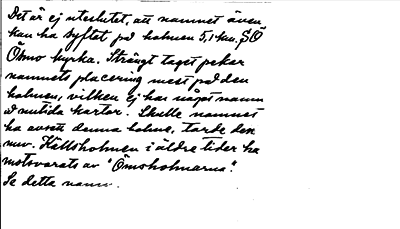 Det är ej uteslutet, att namnet även
kan ha syftat på holmen 5,1 km. SÖ
Ösmo kyrka. Strängt taget pekar
namnets placering mest på den
holmen, vilken ej har något namn
å nutida kartor. Skulle namnet
ha avsett denna holme, torde den
nuv. Hållsholmen i äldre tider ha
motsvarats av "Ömsholmarna".
Se detta namn.